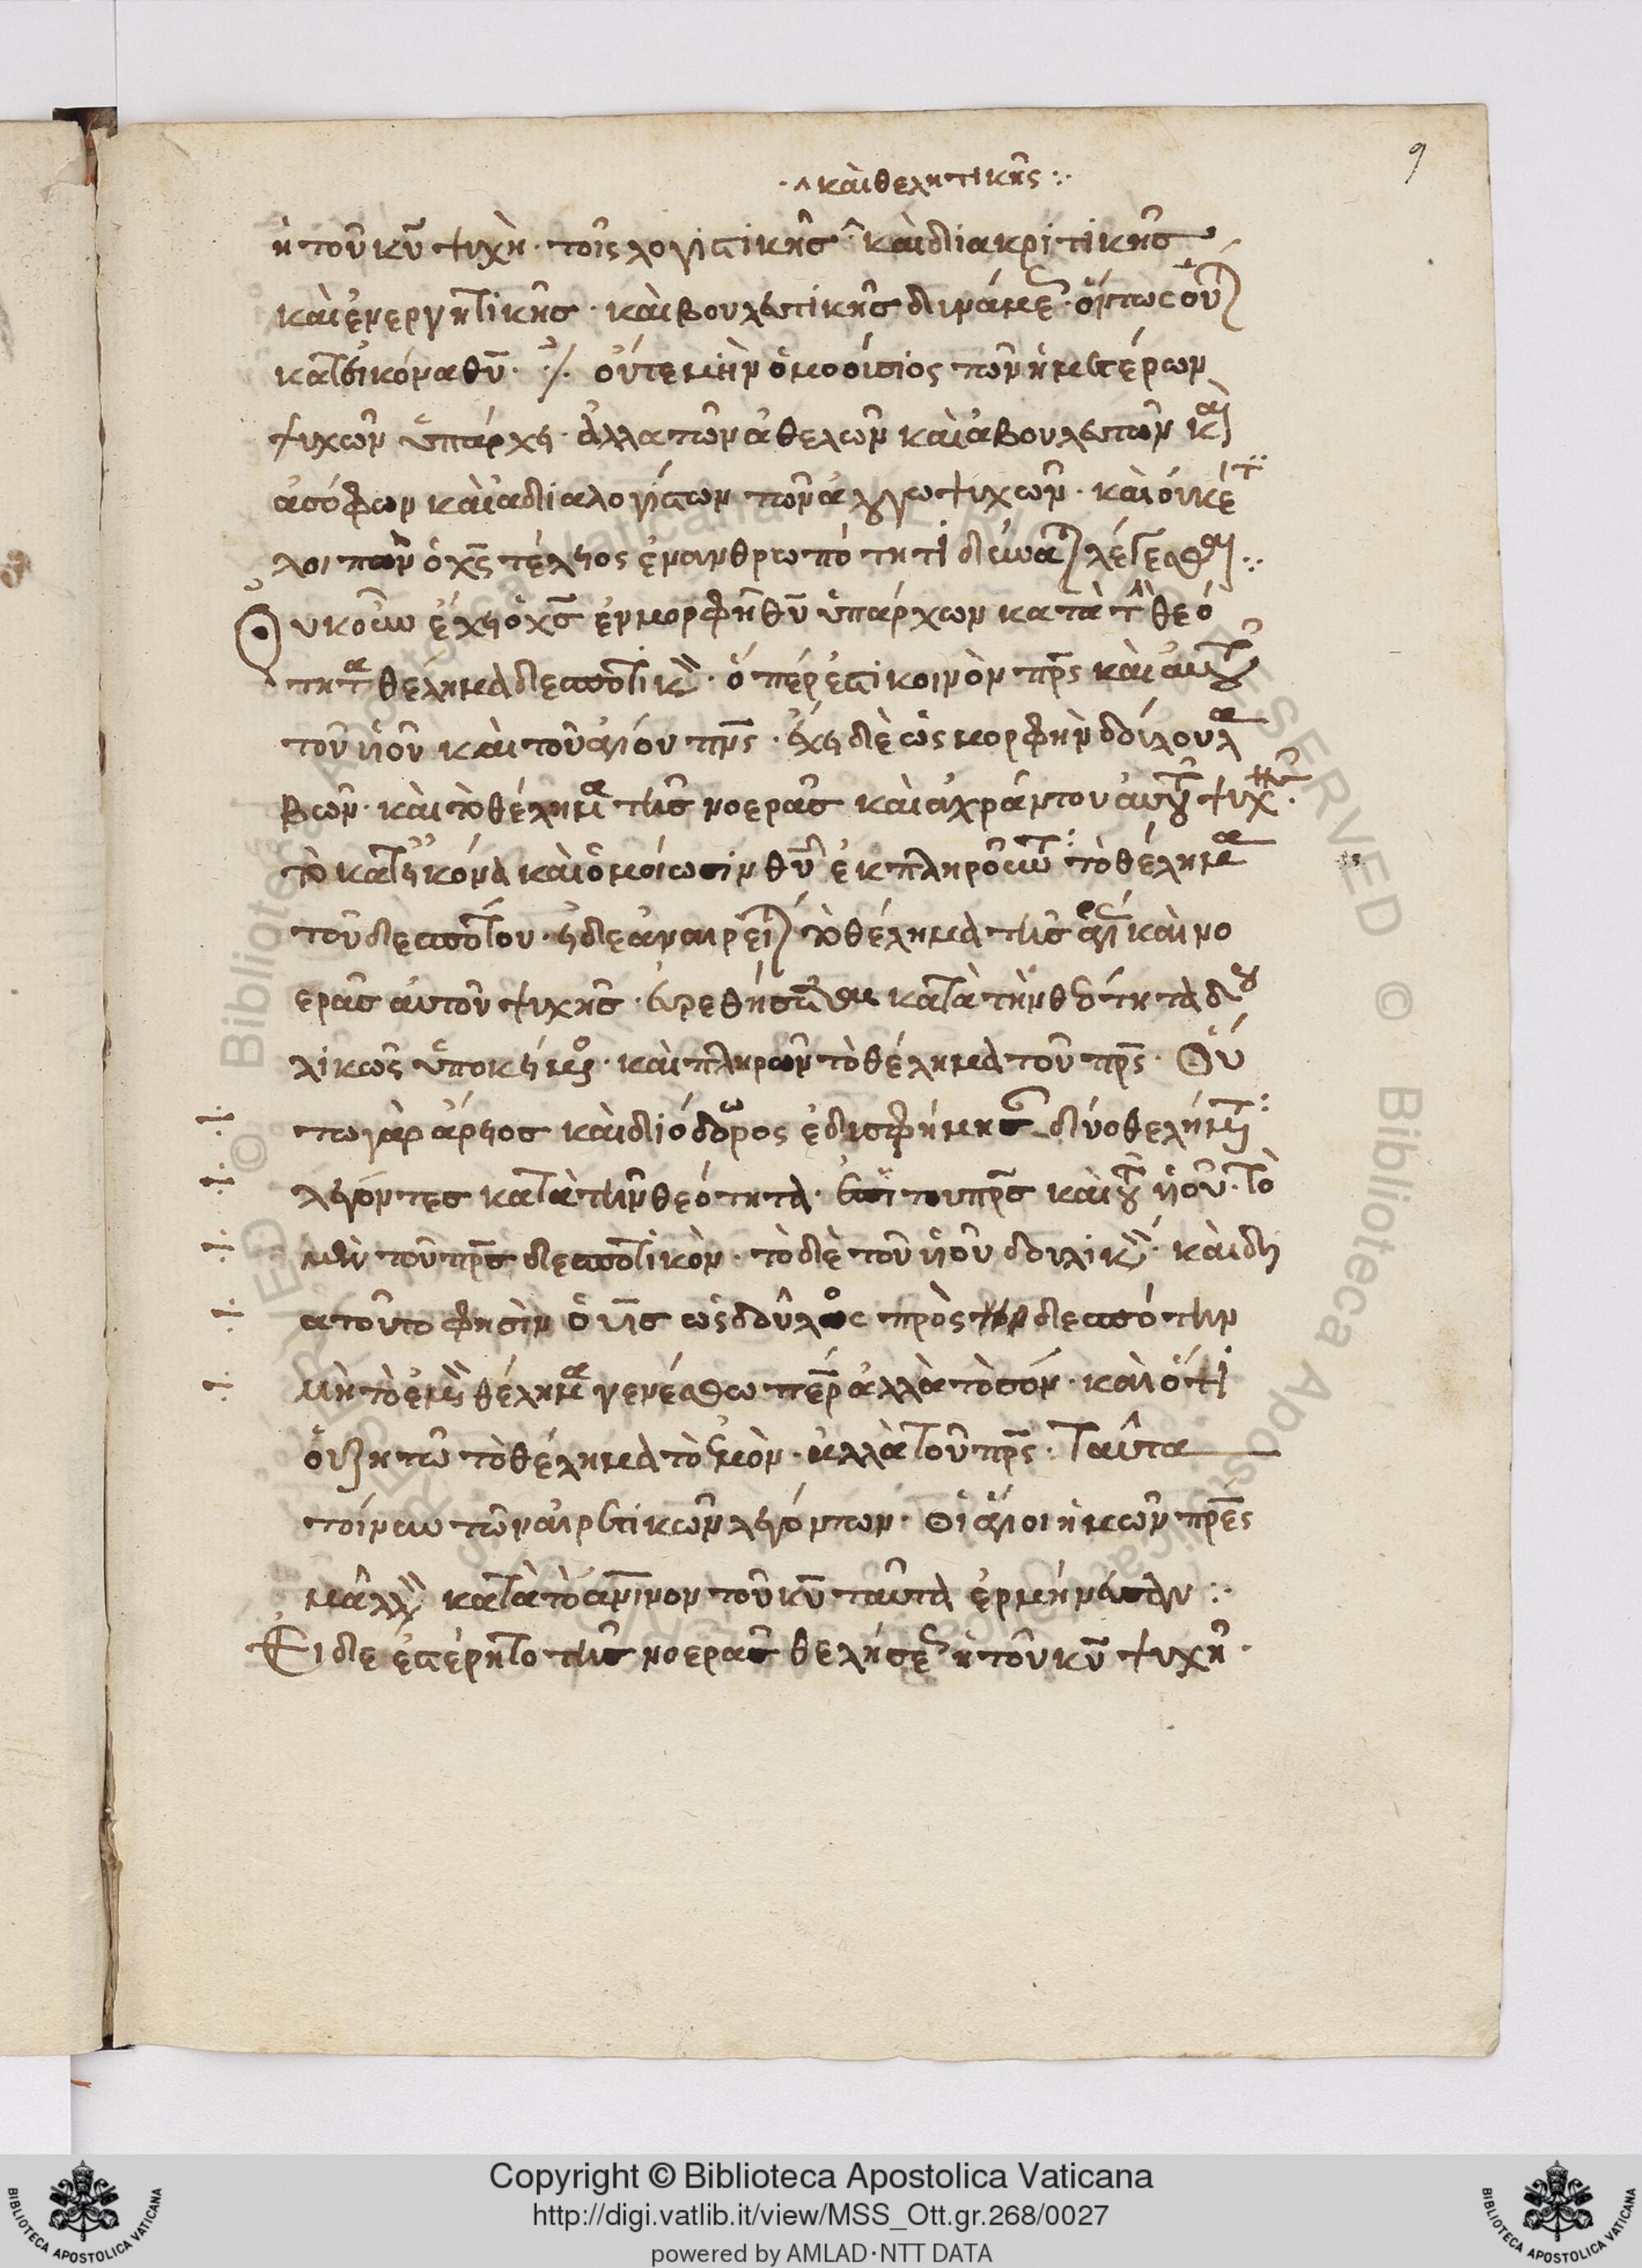 9
·^ καὶ θελητικῆς :·
ἡ τοῦ κῦ ψυχὴ · τοῖς λογιστικῆσ ^ καὶ διακριτικῆσ
καὶ ἐνεργητικῆσ · καὶ βουλευτικῆσ δυνάμε · οὕτως οὖν
κατεικόνα θῦ · οὔτε μὴν ὁμοούσιός τῶν ἡμετέρων
ψυχῶν ὑπάρχει · ἀλλα τῶν ἀθελῶν καὶ ἀβουλεύτων κ
ἀσόφων καὶ ἀδιαλογίστων τῶν ἀλόγω ψυχῶν · καὶ οὐκέτ
λοιπὸν ὁ χς τέλειος ἐν ἀνθρωπότητι δύναται λέγεσθαι :·
Οὐκοῦν ἔχει ὁ χσ ἐν μορφῆ θῦ ὑπάρχων κατὰ τ θεό
τητα θέλημα δεσποτικὸν · ὅπέρ ἐστι κοινὸν πρς καὶ αυτοῦ
τοῦ ὑιοῦ καὶ τοῦ ἁγίου πνς · ἔχει δὲ ὡς μορφὴν δούλου λα
βὼν · καὶ τὸ θέλημα τῆσ νοερᾶσ καὶ ἀχράντου αὐτοῦ ψυχ ·
τὸ κατεικόνα καὶ ὁμοίωσιν θῦ ἐκπληροῦν τὸ θέλημα
τοῦ δεσπότου · εἰ δε ἀναιρεῖται τὸ θέλημα τῆσ ἁγί καὶ νο
ερᾶσ αὐτοῦ ψυχῆσ · εὑρεθήσεται κατὰ τὴν θεότητα δου
λικῶς ὑποκείμενος · καὶ πληρῶν τὸ θέλημα τοῦ πρς · Οὕ
τω γὰρ ἄρειος καὶ διόδωρος ἐδυσφήμησ δύο θελήμ
λέγοντες κατὰ τὴν θεότητα · ἐπὶ του πρσ καὶ τοῦ ὑιοῦ · τὸ
μὲν τοῦ πρσ δεσποτικὸν · τὸ δὲ τοῦ ὑιοῦ δουλικὸν · καὶ δι
α τοῦτο φησὶν ὁ υισ ὡς δοῦλος πρὸς τὸν δεσπότην
Μὴ τὸ ἐμὸν θέλημα γενέσθω περ ἀλλὰ τὸ σόν · καὶ ὅτι
οὐ ζητῶ τὸ θέλημα τὸ ἐμὸν · ἀλλὰ τοῦ πρς · Ταῦτα
τοίνυν τῶν αἱρετικῶν λεγόντων · Οἱ ἅγιοι ἡμῶν πρες
μᾶλλον κατὰ τὸ ἀνινον τοῦ κῦ ταῦτα ἑρμήνευσαν :·
Εἰ δε ἐστέρητο τῆσ νοερᾶσ θελήσε ἡ τοῦ κῦ ψυχὴ ·
Copyright © Biblioteca Apostolica Vaticana
http://digi.vatlib.it/view/MSS_Ott.gr.268/0027
powered by AMLAD·NTT DATA
BIBLIOTECA APOSTOLICA VATICANA
BIBLIOTECA APOSTOLICA VATICANA